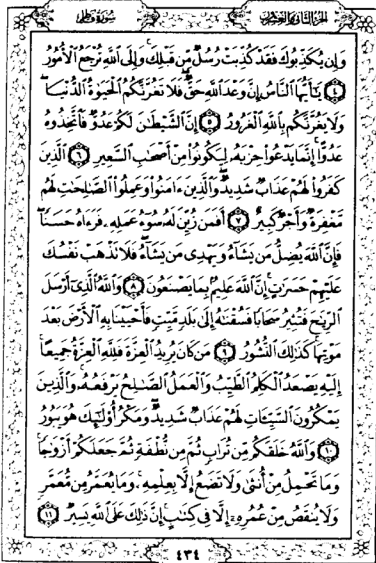 الجزء الثاني والعشرون سورة فاطر
وَإِن يُكَذِّبُوكَ فَقَدْ كُذِّبَتْ رُسُلٌ مِّن قَبْلِكَ ۚ وَإِلَى ٱللَّهِ تُرْجَعُ ٱلْأُمُورُ
٤ يَٰٓأَيُّهَا ٱلنَّاسُ إِنَّ وَعْدَ ٱللَّهِ حَقٌّ ۖ فَلَا تَغُرَّنَّكُمُ ٱلْحَيَوٰةُ ٱلدُّنْيَا ۖ
وَلَا يَغُرَّنَّكُم بِٱللَّهِ ٱلْغَرُورُ ٥ إِنَّ ٱلشَّيْطَٰنَ لَكُمْ عَدُوٌّ فَٱتَّخِذُوهُ
عَدُوًّا ۚ إِنَّمَا يَدْعُوا۟ حِزْبَهُۥ لِيَكُونُوا۟ مِنْ أَصْحَٰبِ ٱلسَّعِيرِ ٦ ٱلَّذِينَ
كَفَرُوا۟ لَهُمْ عَذَابٌ شَدِيدٌ ۖ وَٱلَّذِينَ ءَامَنُوا۟ وَعَمِلُوا۟ ٱلصَّٰلِحَٰتِ لَهُم
مَّغْفِرَةٌ وَأَجْرٌ كَبِيرٌ ٧ أَفَمَن زُيِّنَ لَهُۥ سُوٓءُ عَمَلِهِۦ فَرَءَاهُ حَسَنًا ۖ
فَإِنَّ ٱللَّهَ يُضِلُّ مَن يَشَآءُ وَيَهْدِى مَن يَشَآءُ ۖ فَلَا تَذْهَبْ نَفْسُكَ
عَلَيْهِمْ حَسَرَٰتٍ ۚ إِنَّ ٱللَّهَ عَلِيمٌۢ بِمَا يَصْنَعُونَ ٨ وَٱللَّهُ ٱلَّذِىٓ أَرْسَلَ
ٱلرِّيَٰحَ فَتُثِيرُ سَحَابًا فَسُقْنَٰهُ إِلَىٰ بَلَدٍ مَّيِّتٍ فَأَحْيَيْنَا بِهِ ٱلْأَرْضَ بَعْدَ
مَوْتِهَا ۚ كَذَٰلِكَ ٱلنُّشُورُ ٩ مَن كَانَ يُرِيدُ ٱلْعِزَّةَ فَلِلَّهِ ٱلْعِزَّةُ جَمِيعًا ۚ
إِلَيْهِ يَصْعَدُ ٱلْكَلِمُ ٱلطَّيِّبُ وَٱلْعَمَلُ ٱلصَّٰلِحُ يَرْفَعُهُۥ ۚ وَٱلَّذِينَ
يَمْكُرُونَ ٱلسَّيِّـَٔاتِ لَهُمْ عَذَابٌ شَدِيدٌ ۖ وَمَكْرُ أُو۟لَٰٓئِكَ هُوَ يَبُورُ
١٠ وَٱللَّهُ خَلَقَكُم مِّن تُرَابٍ ثُمَّ مِن نُّطْفَةٍ ثُمَّ جَعَلَكُمْ أَزْوَٰجًا ۚ
وَمَا تَحْمِلُ مِنْ أُنثَىٰ وَلَا تَضَعُ إِلَّا بِعِلْمِهِۦ ۚ وَمَا يُعَمَّرُ مِن مُّعَمَّرٍ
وَلَا يُنقَصُ مِنْ عُمُرِهِۦٓ إِلَّا فِى كِتَٰبٍ ۚ إِنَّ ذَٰلِكَ عَلَى ٱللَّهِ يَسِيرٌ ١١
٤٣٤